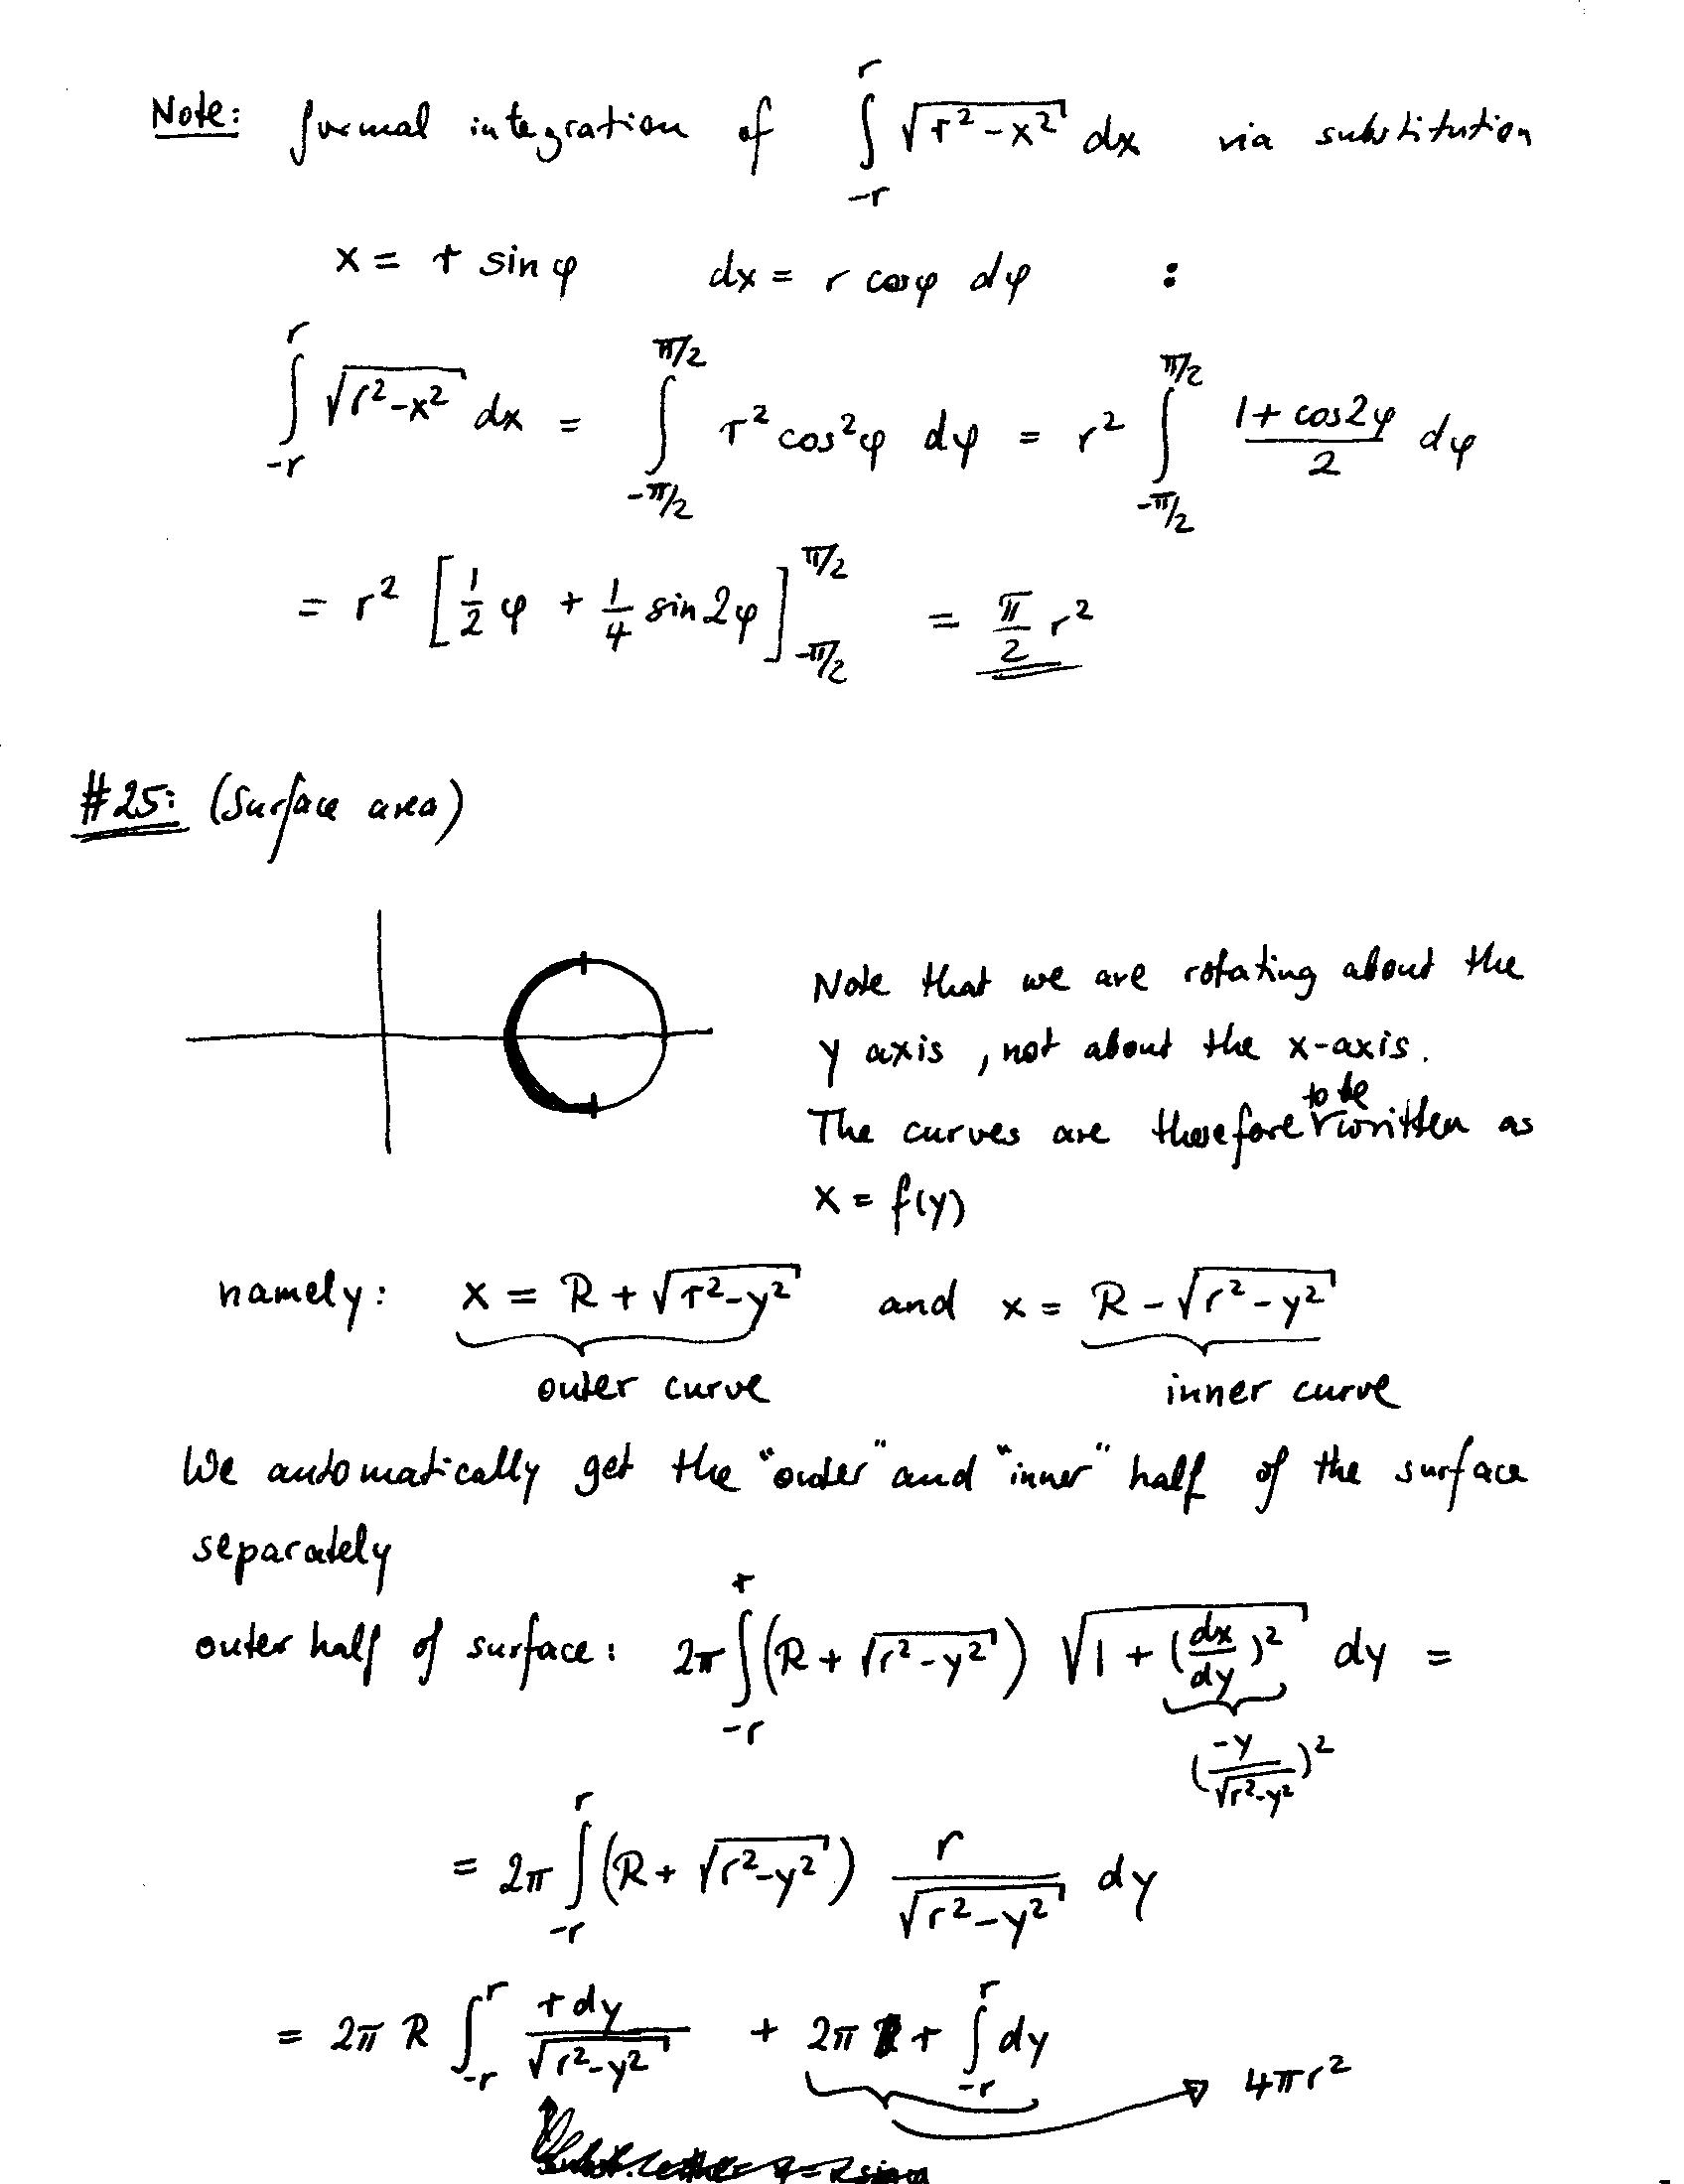 Note: formal integration of ∫_{-r}^{r} √(r²-x²) dx via substitution
x = r sin φ dx = r cos φ dφ :
∫_{-r}^{r} √(r²-x²) dx = ∫_{-π/2}^{π/2} r² cos²φ dφ = r² ∫_{-π/2}^{π/2} (1 + cos 2φ)/2 dφ
= r² [ 1/2 φ + 1/4 sin 2φ ]_{-π/2}^{π/2} = π/2 r²
#25: (Surface area)
Note that we are rotating about the
y axis, not about the x-axis.
The curves are therefore to be written as
x = f(y)
namely: x = R + √(r²-y²) and x = R - √(r²-y²)
outer curve inner curve
We automatically get the "outer" and "inner" half of the surface
separately
outer half of surface: 2π ∫_{-r}^{r} (R + √(r²-y²)) √(1 + (dx/dy)²) dy =
(-y/√(r²-y²))²
= 2π ∫_{-r}^{r} (R + √(r²-y²)) r/√(r²-y²) dy
= 2π R ∫_{-r}^{r} r dy/√(r²-y²) + 2π r ∫_{-r}^{r} dy
4πr²